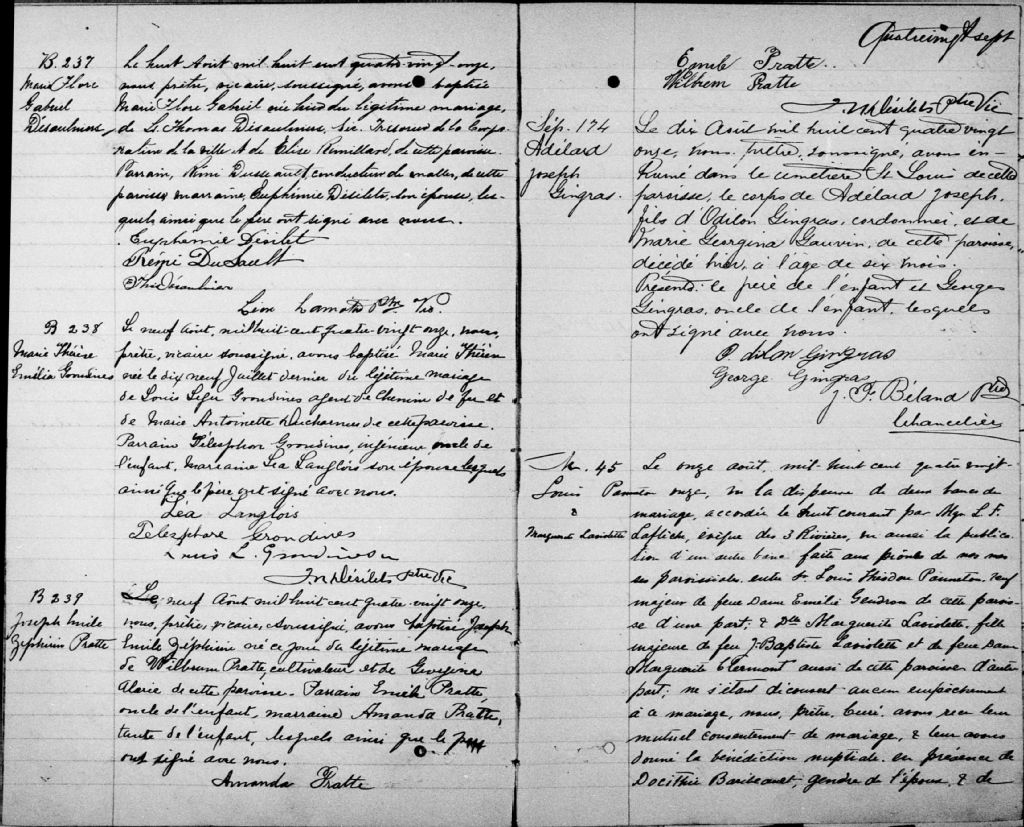 B 237
Marie Flore
Gabriel
Désaulniers
Le huit Août mil huit cent quatre-vingt-onze,
nous prêtre, vicaire, soussigné, avons baptisé
Marie Flore Gabriel née hier du légitime mariage,
de St. Thomas Désaulniers, Sec. Trésorier de la Corpo-
ration de la ville & de Elise Remillard, de cette paroisse.
Parrain, Rémi Dussault, conducteur de malles, de cette
paroisse, marraine, Euphémie Désilets, son épouse, les-
quels ainsi que le père ont signé avec nous.
Euphemie Désilet
Rémi DuSault
Ths Désaulniers
Léon Lamothe Ptre Vic.
B 238
Marie Thérèse
Emélia Grondines
Le neuf Août, mil huit cent quatre-vingt onze, nous,
prêtre, vicaire soussigné, avons baptisé Marie Thérèse
née le dix neuf Juillet dernier du légitime mariage
de Louis Grondines agent de Chemin de fer et
de Marie Antoinette Ducharme de cette paroisse.
Parrain Télesphor Grondines, ingénieur, oncle de
l'enfant, Marraine Léa Langlois son épouse lesquels
ainsi que le père ont signé avec nous.
Léa Langlois
Telesphore Grondines
Louis L. Grondines
J N Désilets ptre Vic
B 239
Joseph Emile
Zéphirin Pratte
Le neuf Août mil huit cent quatre-vingt onze,
nous, prêtre, vicaire, soussigné, avons baptisé Joseph
Emile Zéphirin né ce jour du légitime mariage
de Wilbrum Pratte, cultivateur et de Georgina
Alarie de cette paroisse. Parrain Emile Pratte
oncle de l'enfant, marraine Amanda Pratte,
tante de l'enfant, lesquels ainsi que le père
ont signé avec nous.
Amanda Pratte
Quatrevingt sept
Emile Pratte
Wilbrem Pratte
J N Désilets ptre Vic
Sép. 174
Adélard
Joseph
Gingras.
Le dix Août mil huit cent quatre vingt
onze, nous, prêtre, soussigné, avons in-
humé dans le cimetière St Louis de cette
paroisse, le corps de Adélard Joseph,
fils d'Odilon Gingras, cordonnier, et de
Marie Georgina Gauvin, de cette paroisse,
décédé hier, à l'âge de six mois.
Présents: le père de l'enfant et Georges
Gingras, oncle de l'enfant, lesquels
ont signé avec nous.
O. dilon Gingras
George Gingras
J. F. Béland Ptre
Chancelier
M. 45
Louis Panneton
&
Marguerite Laviolette
Le onze août, mil-huit cent quatre vingt-
onze, vu la dispense de deux bancs de
mariage, accordée le huit courant par Mgr L. F.
Laflèche, évêque des 3 Rivières, vu aussi la publica-
tion d'un autre banc faite aux prônes de nos mes-
ses paroissiales, entre St Louis Théodore Panneton, veuf
majeur de feue Dame Emélie Gendron de cette parois-
se d'une part; & Dlle Marguerite Laviolette, fille
majeure de feu J-Baptiste Laviolette et de feue Dame
Marguerite Clermont aussi de cette paroisse d'autre
part; ne s'étant découvert aucun empêchement
à ce mariage, nous, prêtre, Curé, avons reçu leur
mutuel consentement de mariage, & leur avons
donné la bénédiction nuptiale, en présence de
Docithée gendre de l'époux, & de